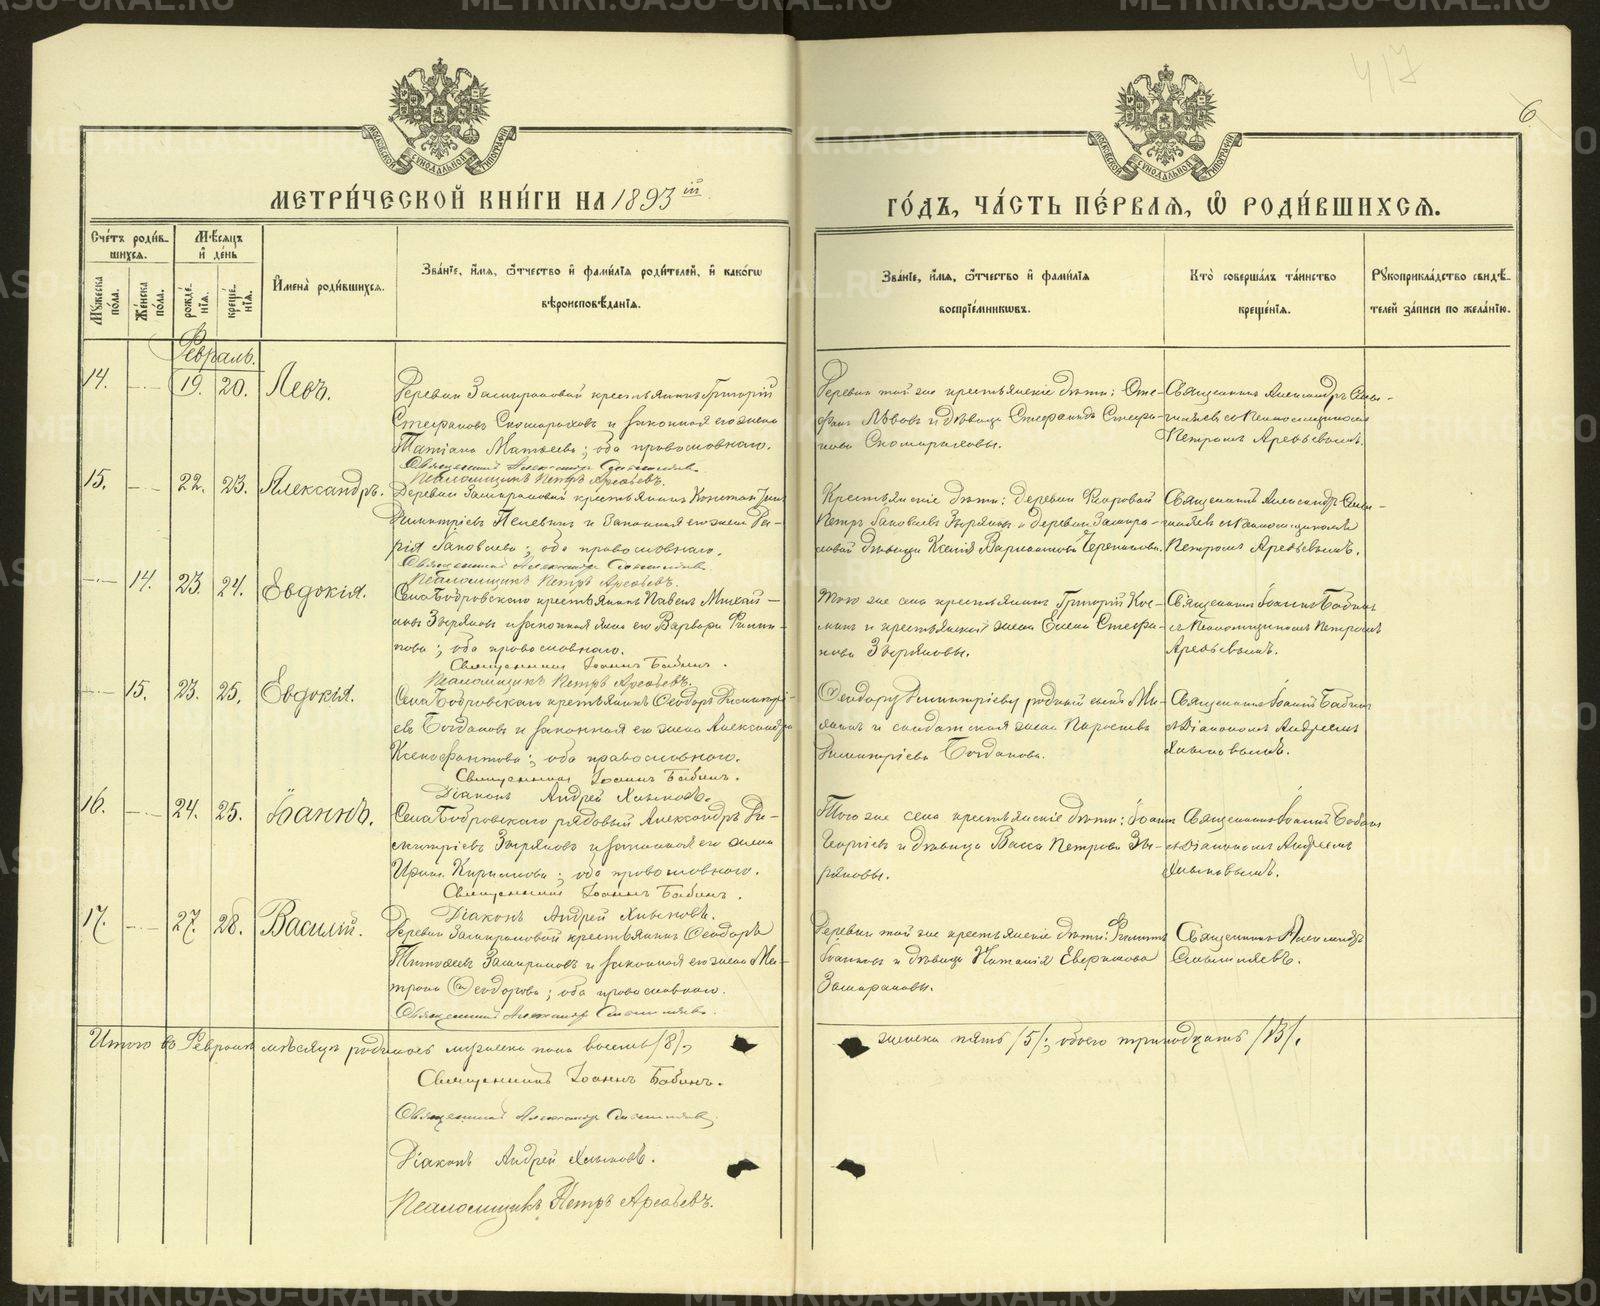 417
6
МОСКОВСКОЙ СУНОДАЛЬНОЙ ТИПОГРАФІИ
МОСКОВСКОЙ СУНОДАЛЬНОЙ ТИПОГРАФІИ
МЕТРИ́ЧЕСКОЙ КНИ́ГИ НА 1893 ій
ГО́ДЪ, ЧА́СТЬ ПЕ́РВАЯ, Ѡ РОДИ́ВШИХСЯ.
Сче́тъ роди́в-
шихся.
Мѣ́сяцъ
и҆ де́нь
Му́жеска по́ла.
Же́нска по́ла.
рожде́нія.
креще́нія.
И҆мена̀ роди́вшихся.
Зва́ніе, и҆́мя, ѻ҆́тчество и҆ фами́лія роди́телей, и҆ како́гѡ
вѣроисповѣ́данія.
Зва́ніе, и҆́мя, ѻ҆́тчество и҆ фами́лія
воспріе́мникѡвъ.
Кто̀ соверша́лъ та́инство
креще́нія.
Рꙋкоприкла́дство свидѣ́-
телей за́писи по жела́нію.
Февраль.
14. 19. 20. Левъ.
Деревни Замираловой крестьянинъ Григорій
Стефановъ Скоморохов и законная его жена
Татіана Матѳеева; оба православнаго.
Священникъ Александръ
Псаломщикъ Петръ Арефьевъ.
Деревни той же крестьянскіе дѣти: Сте-
фанъ Львовъ и дѣвица Стефанида Стефа-
нова Скомороховы.
Священникъ Александръ
съ Псаломщикомъ
Петромъ Арефьевымъ.
15. 22. 23. Александръ.
Деревни Замираловой крестьянинъ Константинъ
Димитріевъ и законная его жена Ма-
рія Іаковлева; оба православнаго.
Священникъ Александръ
Псаломщикъ Петръ Арефьевъ.
Крестьянскіе дѣти: деревни
Петръ Іаковлевъ Зыряновъ и деревни Замира-
ловой дѣвица Ксенія Варлаамова Черепанова.
Священникъ Александръ
съ Псаломщикомъ
Петромъ Арефьевымъ.
14. 23. 24. Евдокія.
Села Бобровскаго крестьянинъ Павелъ Михай-
ловъ Зыряновъ и законная жена его Варвара Филип-
пова; оба православнаго.
Священникъ Іоаннъ Бабинъ.
Псаломщикъ Петръ Арефьевъ.
Того же села крестьянинъ Григорій Кос-
минъ и крестьянская жена Елена Стефа-
нова Зыряновы.
Священникъ Іоаннъ Бабинъ
съ Псаломщикомъ Петромъ
Арефьевымъ.
15. 23. 25. Евдокія.
Села Бобровскаго крестьянинъ Ѳеодоръ Димитрі-
евъ Богдановъ и законная его жена Александра
Ксенофонтова; оба православнаго.
Священникъ Іоаннъ Бабинъ.
Діаконъ Андрей Хлыновъ.
Ѳеодору Димитріеву родный сынъ
и солдатская жена
Димитріева Богданова.
Священникъ Іоаннъ Бабинъ
съ Діакономъ Андреемъ
Хлыновымъ.
16. 24. 25. Іоаннъ.
Села Бобровскаго рядовый Александръ Ди-
митріевъ Зыряновъ и законная его жена
Ирина Кириллова; оба православнаго.
Священникъ Іоаннъ Бабинъ.
Діаконъ Андрей Хлыновъ.
Того же села крестьянскіе дѣти: Іоаннъ
Георгіевъ и дѣвица Васса Петрова Зы-
ряновы.
Священникъ Іоаннъ Бабинъ
съ Діакономъ Андреемъ
Хлыновымъ.
17. 27. 28. Василій.
Деревни Замираловой крестьянинъ Ѳеодоръ
Тимоѳеевъ Замираловъ и законная его жена Ма-
трона Ѳеодорова; оба православнаго.
Священникъ Александръ
Деревни той же крестьянскіе дѣти: Филиппъ
Іоанновъ и дѣвица Наталія
Замираловы.
Священникъ Александръ
Итого въ Февралѣ мѣсяцѣ родилось мужеска пола восемь /8/,
женска пять /5/; обоего тринадцать /13/.
Священникъ Іоаннъ Бабинъ.
Священникъ Александръ
Діаконъ Андрей Хлыновъ.
Псаломщикъ Петръ Арефьевъ.
METRIKI.GASO-URAL.RU